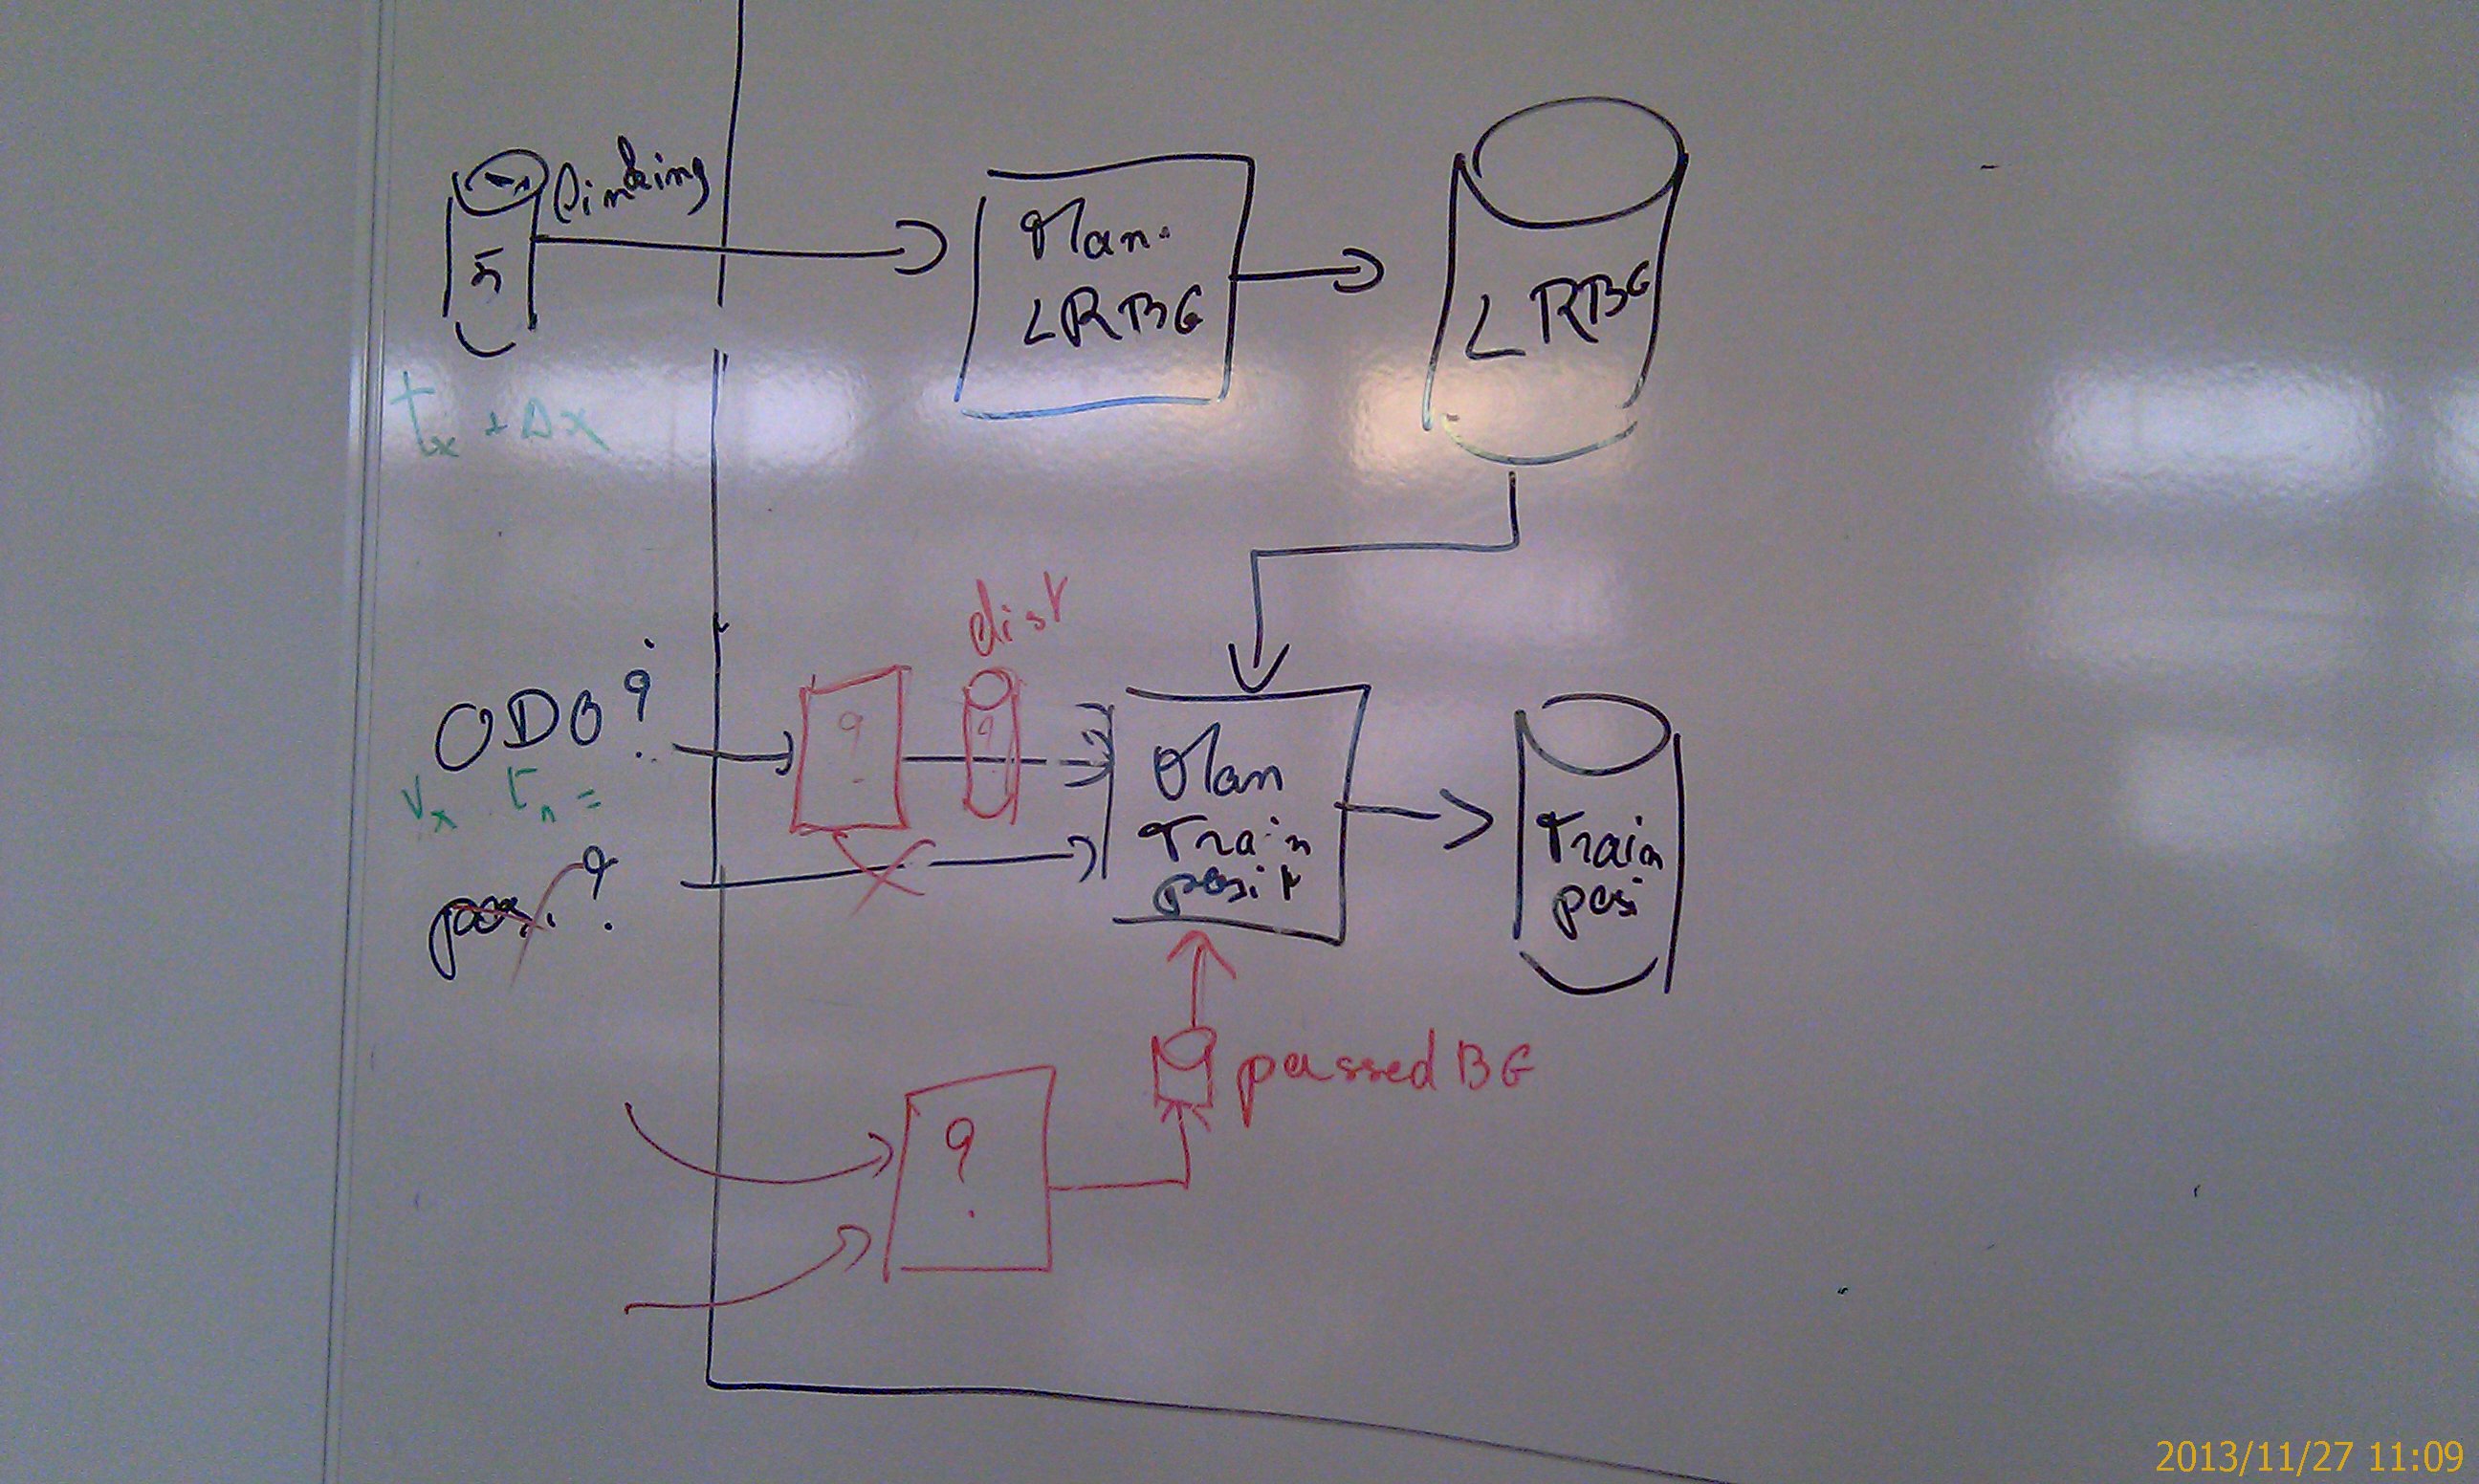 Linking
5
Man.
LRBG
LRBG
tx + Δx
dist
ODO ?
?
?
Man
Train
posit
Train
posi
vx tn =
pos. ?
passed BG
?
2013/11/27 11:09